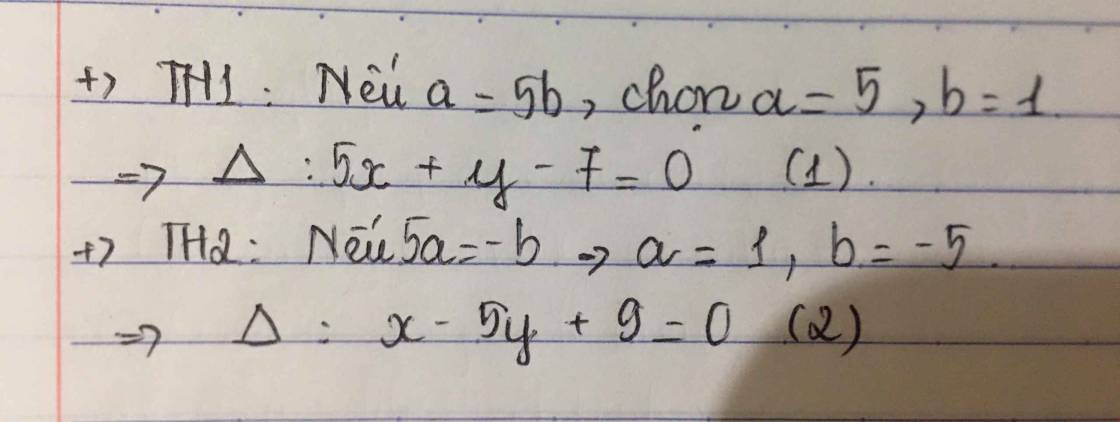 +> TH1 : Nếu a = 5b, chọn a = 5, b = 1.
=> Δ : 5x + y - 7 = 0 (1).
+> TH2 : Nếu 5a = -b -> a = 1, b = -5.
=> Δ : x - 5y + 9 = 0 (2)